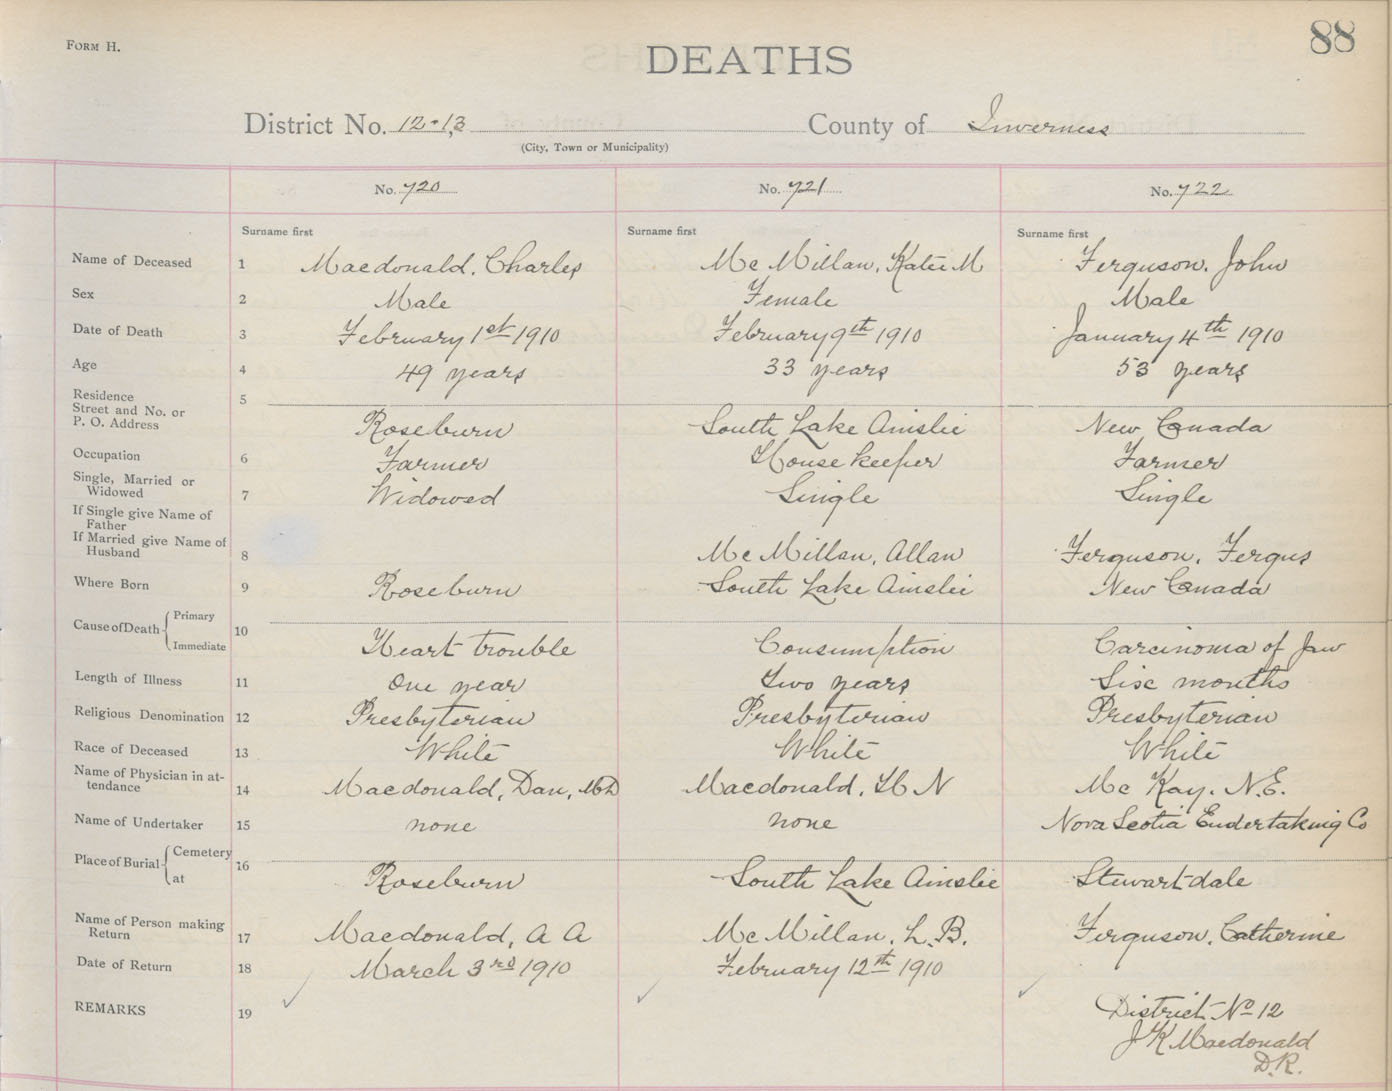 88
FORM H.
DEATHS
District No. 12 · 13 County of Inverness
(City, Town or Municipality)
No. 720 No. 721 No. 722
Surname first Surname first Surname first
Name of Deceased 1 Macdonald, Charles Mc Millan, Katie M Ferguson, John
Sex 2 Male Female Male
Date of Death 3 February 1st 1910 February 9th 1910 January 4th 1910
Age 4 49 years 33 years 53 years
Residence
Street and No. or
P. O. Address 5 Roseburn South Lake Ainslie New Canada
Occupation 6 Farmer House keeper Farmer
Single, Married or
Widowed 7 Widowed Single Single
If Single give Name of
Father
If Married give Name of
Husband 8 Mc Millan, Allan Ferguson, Fergus
Where Born 9 Roseburn South Lake Ainslie New Canada
Cause of Death { Primary
Immediate 10 Heart trouble Consumption Carcinoma of Jaw
Length of Illness 11 One year Two years Six months
Religious Denomination 12 Presbyterian Presbyterian Presbyterian
Race of Deceased 13 White White White
Name of Physician in at-
tendance 14 Macdonald, Dan, MD Macdonald, H N Mc Kay, N. E.
Name of Undertaker 15 none none Nova Scotia Undertaking Co
Place of Burial { Cemetery
at 16 Roseburn South Lake Ainslie Stewartdale
Name of Person making
Return 17 Macdonald, A A Mc Millan, L. B. Ferguson, Catherine
Date of Return 18 March 3rd 1910 February 12th 1910
REMARKS 19 District No 12
J K Macdonald
D. R.